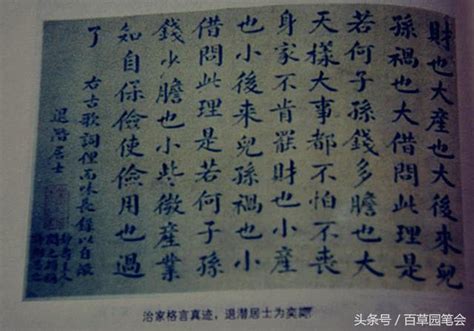 財也大産也大後來兒
孫禍也大借問此理是
若何子孫錢多膽也大
天樣大事都不怕不喪
身家不肯罷財也小産
也小後來兒孫禍也小
借問此理是若何子孫
錢少膽也小些微産業
知自保儉使儉用也過
了
右古歌詞俚而味長錄以自儆
退潛居士
治家格言真迹，退潜居士为奕譞
头条号／百草园笔会